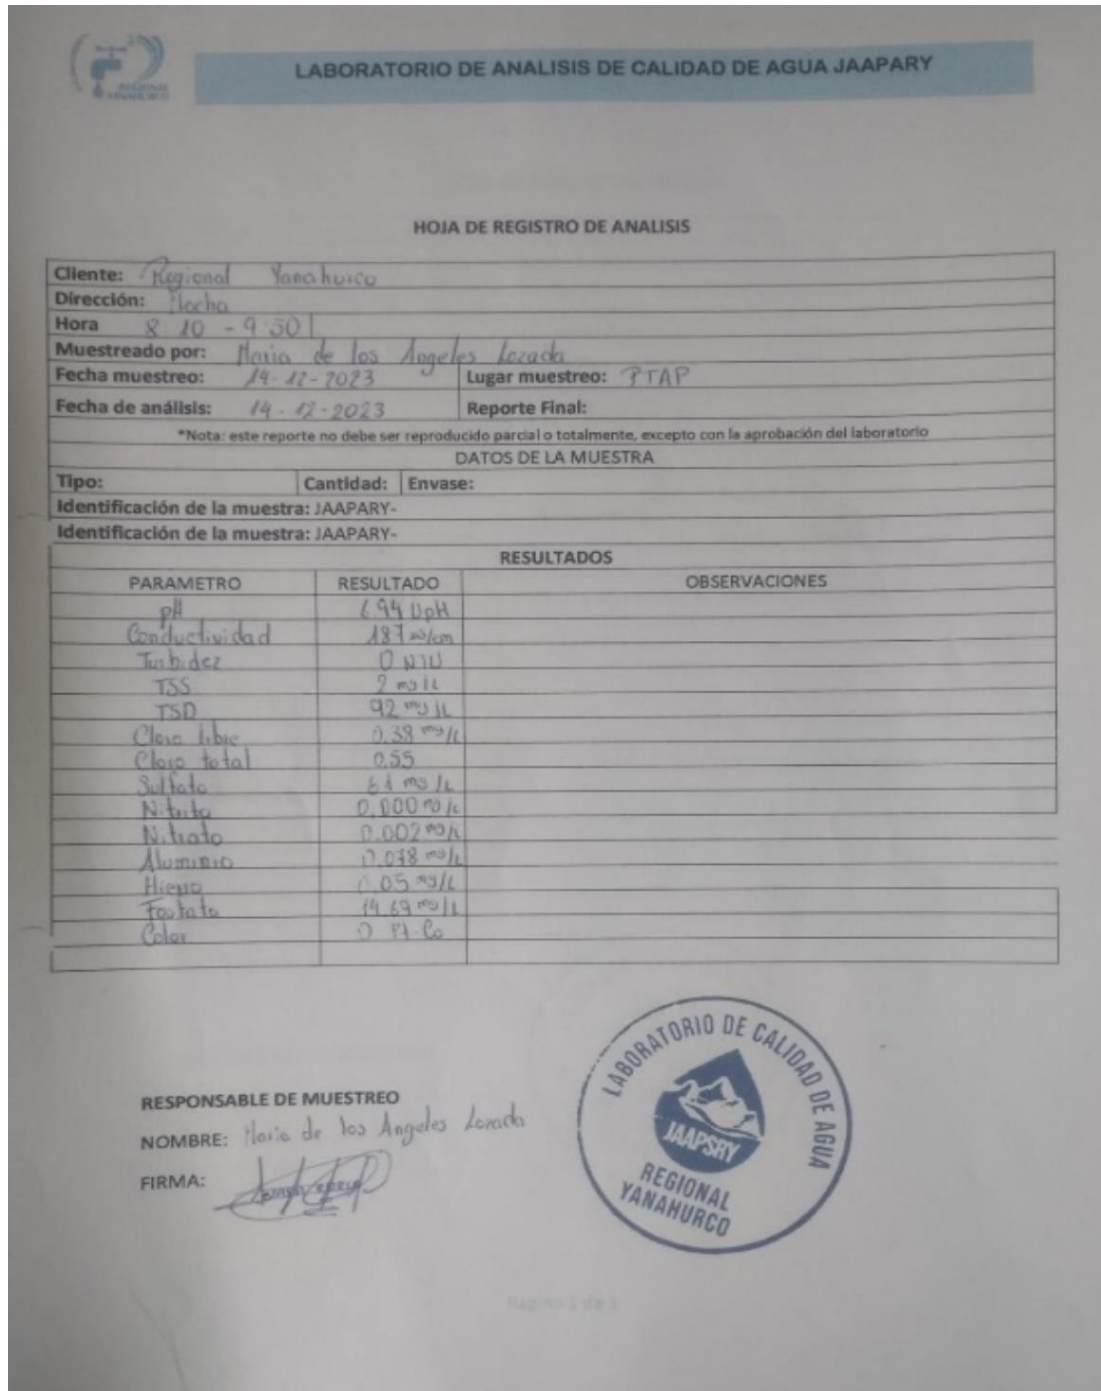 REGIONAL
YANAHURCO
LABORATORIO DE ANALISIS DE CALIDAD DE AGUA JAAPARY
HOJA DE REGISTRO DE ANALISIS
Cliente: Regional Yanahurco
Dirección: Mocha
Hora 8:10 - 9:30
Muestreado por: Maria de los Angeles Lozada
Fecha muestreo: 14-12-2023 Lugar muestreo: PTAP
Fecha de análisis: 14-12-2023 Reporte Final:
*Nota: este reporte no debe ser reproducido parcial o totalmente, excepto con la aprobación del laboratorio
DATOS DE LA MUESTRA
Tipo: Cantidad: Envase:
Identificación de la muestra: JAAPARY-
Identificación de la muestra: JAAPARY-
RESULTADOS
PARAMETRO RESULTADO OBSERVACIONES
pH 6.94 UpH
Conductividad 187 /cm
Turbidez 0 NTU
TSS 2 mg/L
TSD 92 mg/L
Cloro libre 0.38 mg/L
Cloro total 0.55
Sulfato 61 mg/L
Nitrito 0.000 mg/L
Nitrato 0.002 mg/L
Aluminio mg/L
Hierro 0.05 mg/L
Fosfato 14.69 mg/L
Color 0 Pt-Co
RESPONSABLE DE MUESTREO
NOMBRE: Maria de los Angeles Lozada
FIRMA:
LABORATORIO DE CALIDAD DE AGUA
JAAPSRY
REGIONAL
YANAHURCO
Página 1 de 1